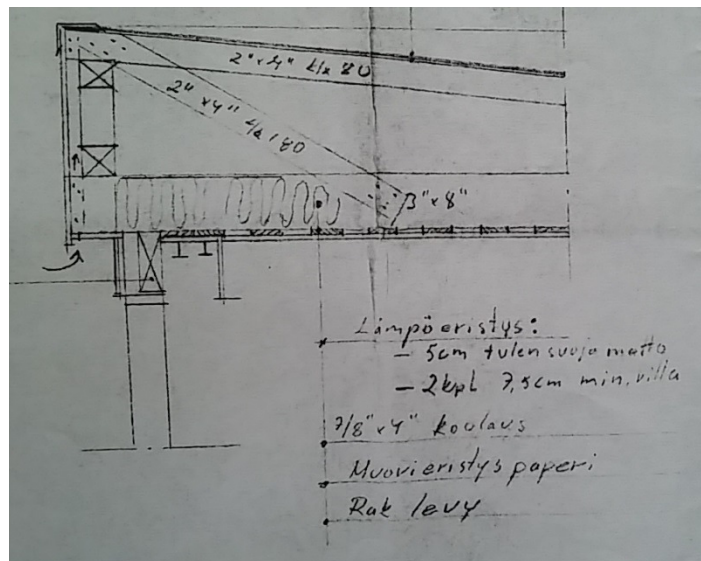 2"x4" k/k 80
2"x4" k/k 180
3"x8"
Lämpöeristys:
- 5cm tulensuoja matto
- 2kpl 7,5cm min. villa
7/8"x4" koolaus
Muovieristys paperi
Rak levy